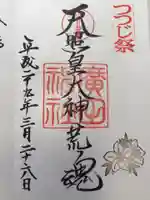 つつじ祭
天照皇大神荒魂
廣田
神社
平成二十九年三月二十八日